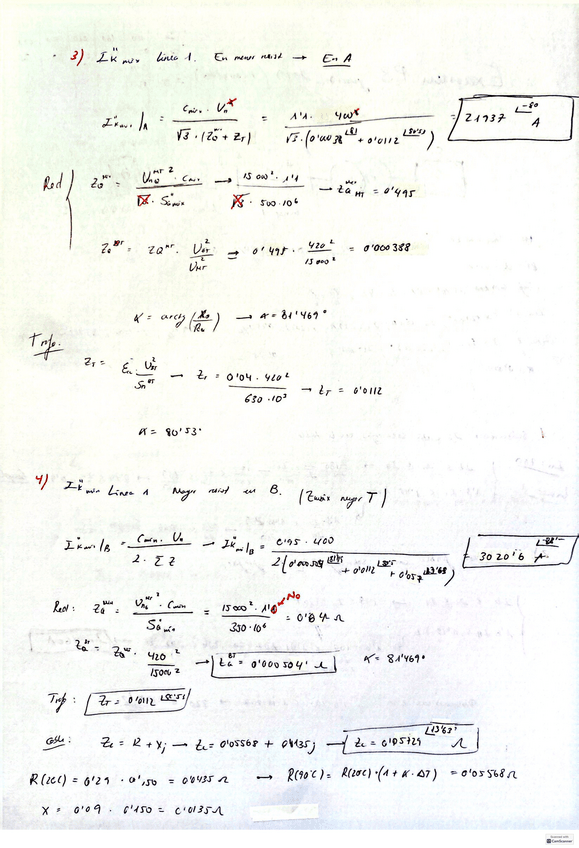 3) I"k máx Línea 1. En menor resist → En A
I"k máx./A = Cmáx · Un / √3 · (ZQ + ZT) = 1'1 · 400 / √3 · (0'0038 |81 + 0'0112 |80'53) = 21937 |-80 A
Red ZQ = UnQ² · Cmáx / S"kmáx → 15000² · 1'1 / 500·10⁶ → ZQ MT = 0'495
ZQ BT = ZQ MT · U²BT / U²MT → 0'495 · 420² / 15000² = 0'000388
α = arctg (XQ / RQ) → α = 81'469°
Trafo.
ZT = εcc · U²BT / Sn → ZT = 0'04 · 420² / 630·10³ → ZT = 0'0112
α = 80'53°
4) I"k min Línea 1 Mayor resist en B. (Zmáx mayor T)
I"k min/B = Cmin · Un / 2 · Σ Z → I"k mi/B = 0'95 · 400 / 2(0'000504 + 0'0112 + 0'057 |13'63) = 3020'6 A
Red: ZQ = UnQ² · Cmin / S"k min = 15000² · 1'0 / 350·10⁶ = 0'64 Ω
No
ZQ BT = ZQ · 420² / 15000² → ZQ BT = 0'000504 Ω α = 81'469°
Traf: ZT = 0'0112 |80'53
ZL = R + Xj → ZL = 0'05568 + 0'0135j → ZL = 0'05729 |13'63° Ω
R(20C) = 0'29 · 0'150 = 0'0435 Ω → R(90°C) = R(20C)·(1 + α · ΔT) = 0'05568 Ω
X = 0'09 · 0'150 = 0'0135 Ω
CamScanner